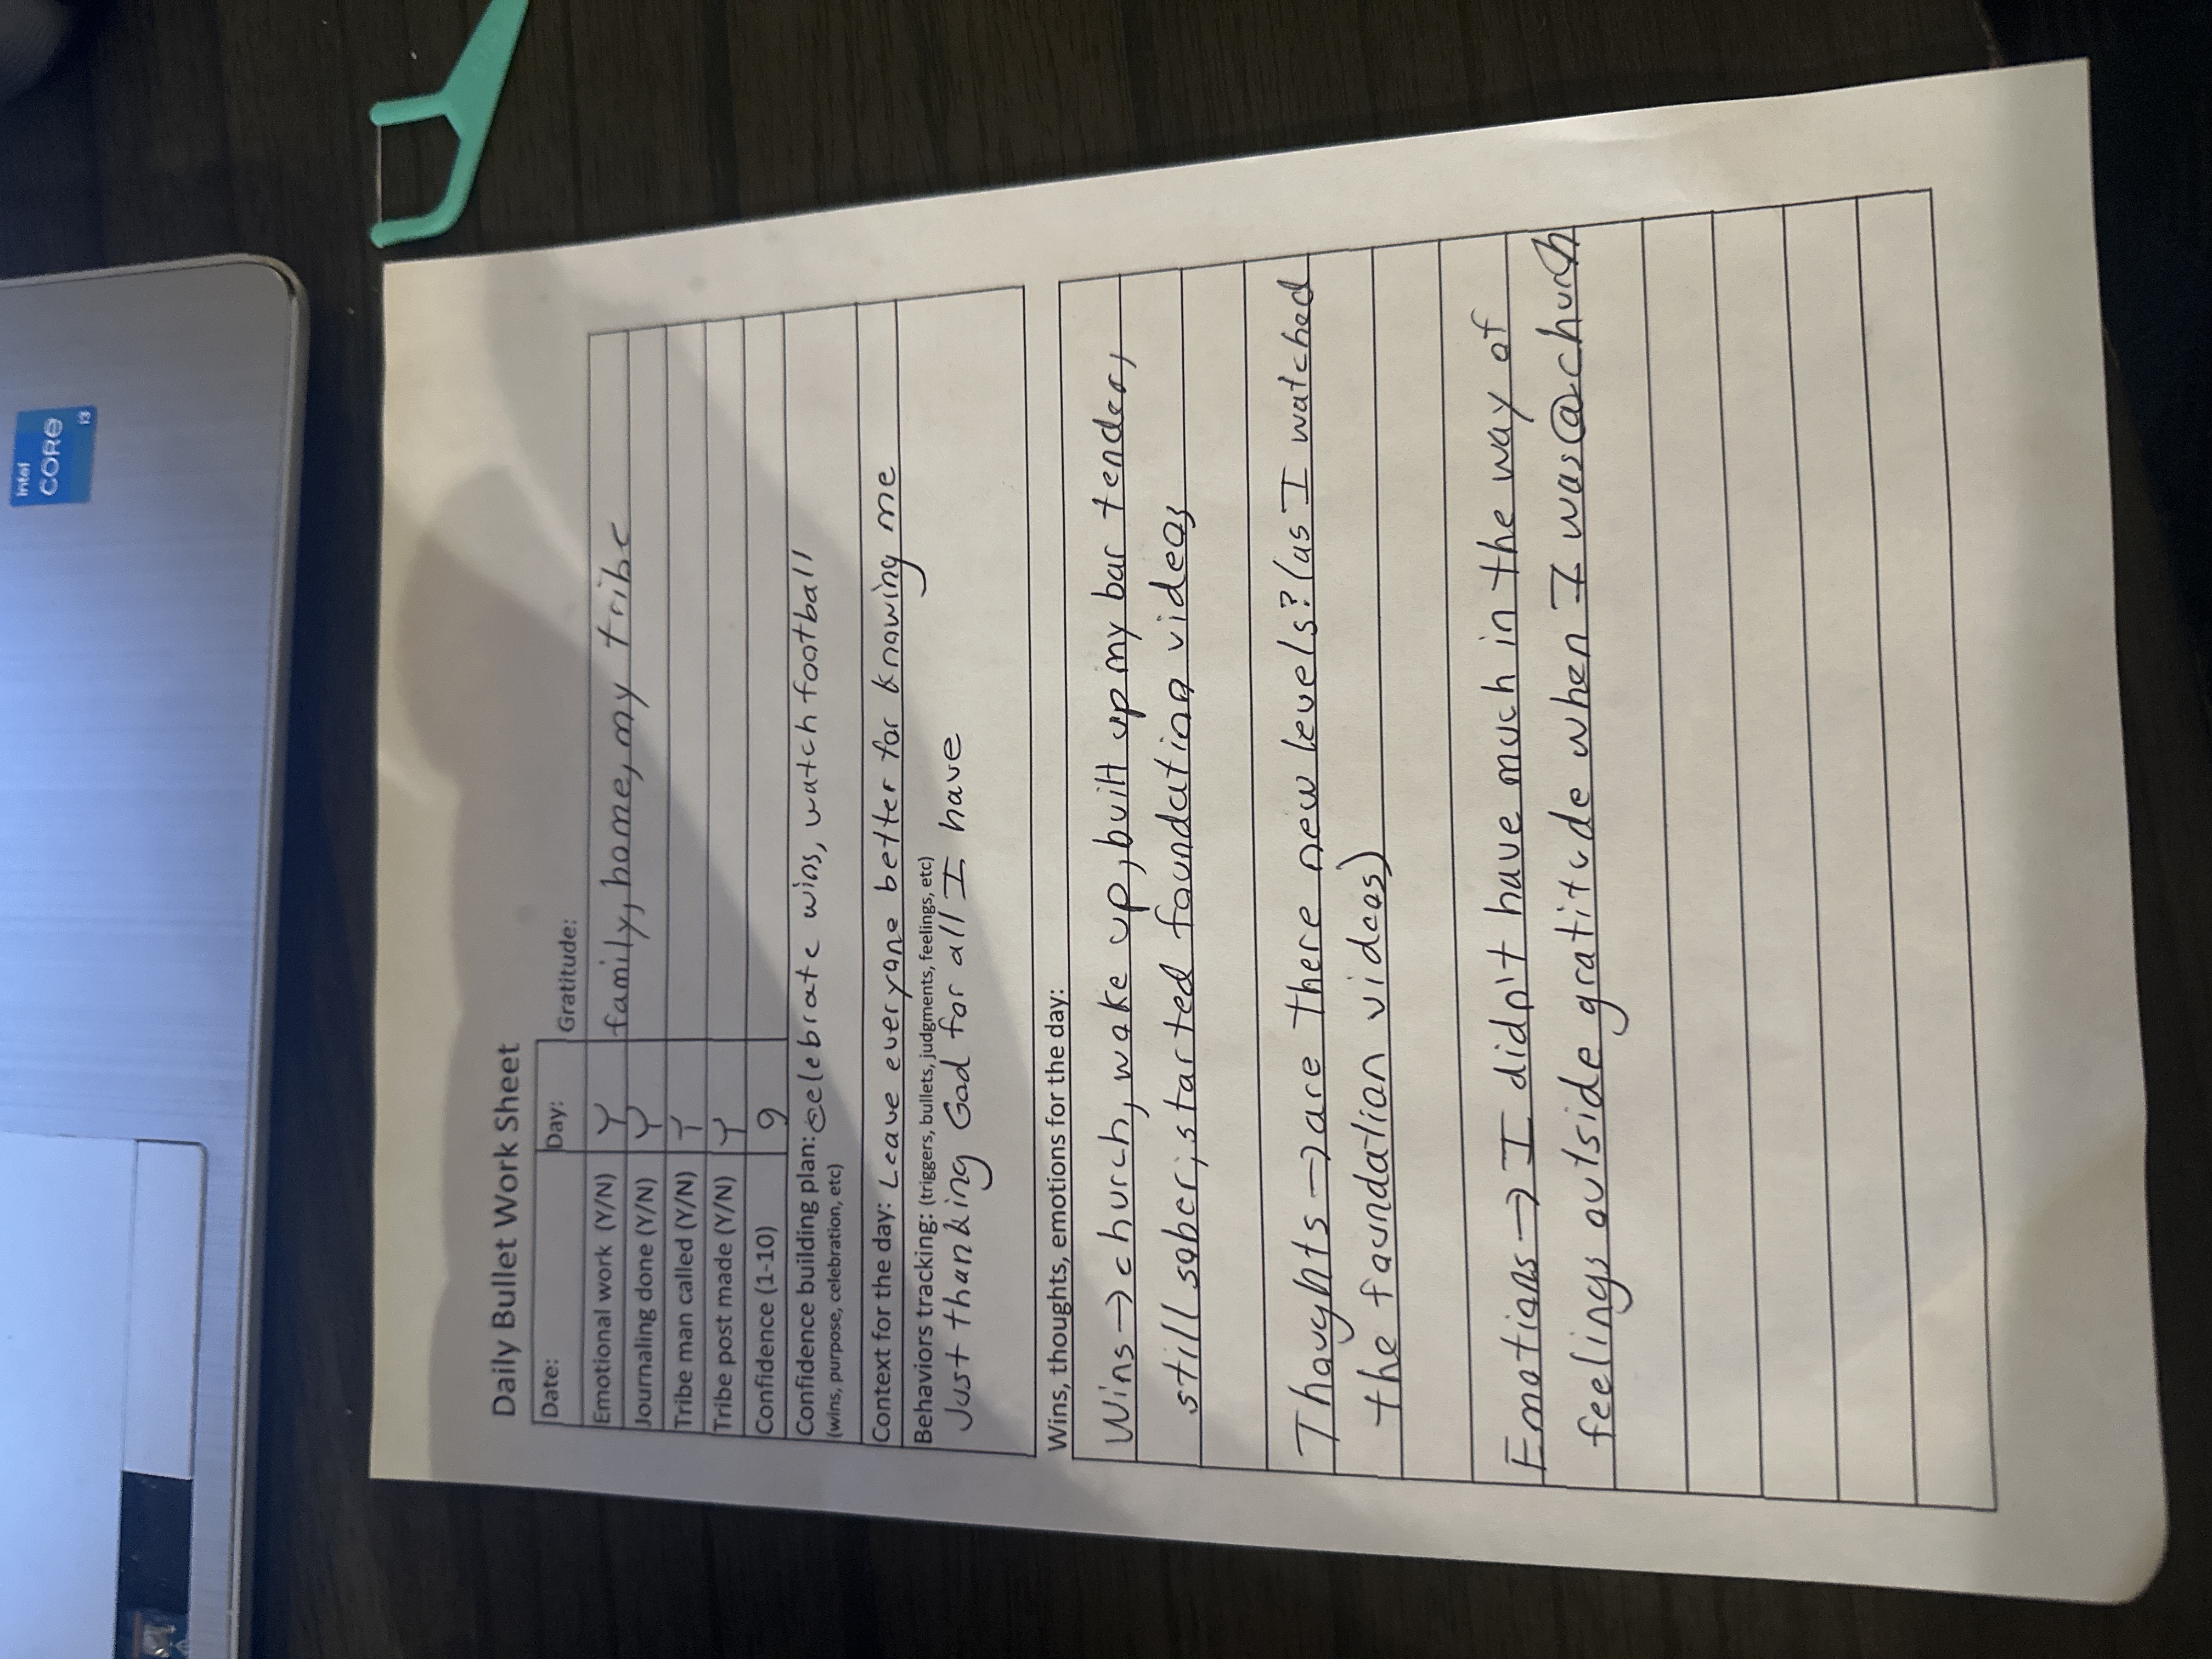 intel
CORE
i3
Daily Bullet Work Sheet
Date: Day: Gratitude:
Emotional work (Y/N) Y family, home, my tribe
Journaling done (Y/N) Y
Tribe man called (Y/N) Y
Tribe post made (Y/N) Y
Confidence (1-10) 9
Confidence building plan: celebrate wins, watch football
(wins, purpose, celebration, etc)
Context for the day: Leave everyone better for knowing me
Behaviors tracking: (triggers, bullets, judgments, feelings, etc)
Just thanking God for all I have
Wins, thoughts, emotions for the day:
Wins → church, wake up, built up my bar tender,
still sober, started foundation videos
Thoughts → are there new levels? (as I watched
the foundation videos)
Emotions → I didn't have much in the way of
feelings outside gratitude when I was @ church